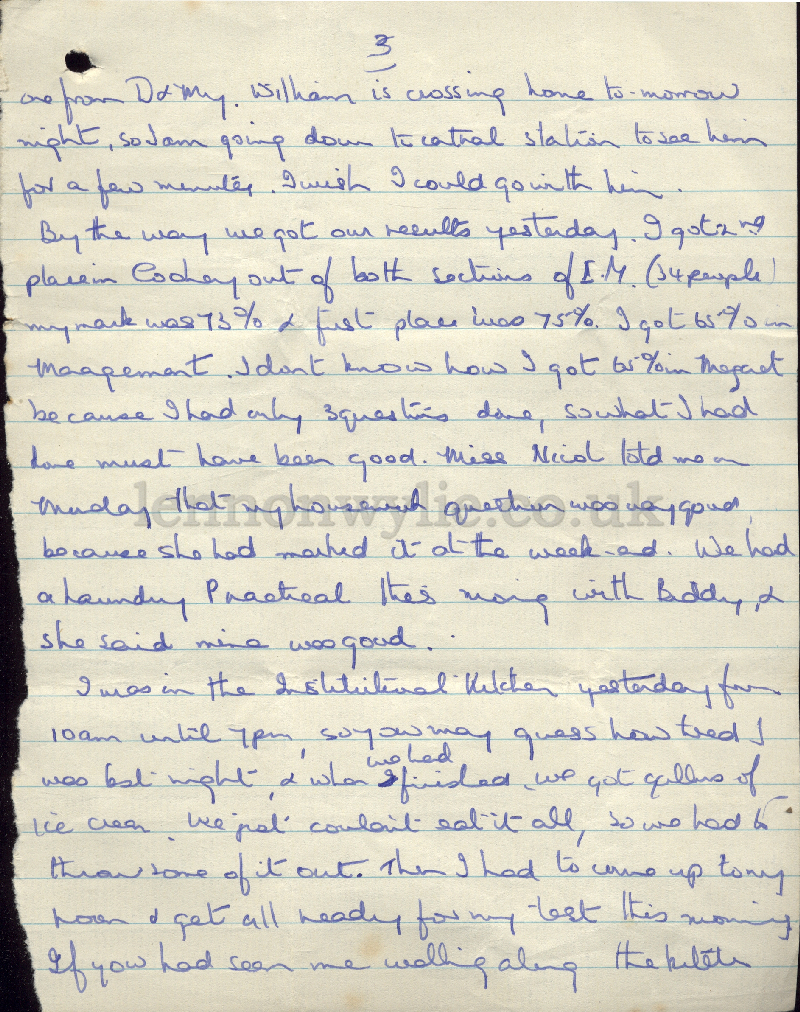 3
one from D & My. William is crossing home to-morrow
night, so I am going down to central station to see him
for a few minutes. I wish I could go with him.
By the way we got our results yesterday. I got 2nd
place in Cookery out of both sections of I.M. (34 people)
my mark was 73% & first place was 75%. I got 65% in
Management. I don't know how I got 65% in Megnet
because I had only 3 questions done, so what I had
done must have been good. Miss Nicol told me on
Monday that my housework question was very good,
because she had marked it at the week-end. We had
a Laundry Practical this morning with Biddy, &
she said mine was good.
I was in the Institutional Kitchen yesterday from
10am until 7pm, so you may guess how tired I
was last night, & when we had finished, we got gallons of
ice cream. We just couldn't eat it all, so we had to
throw some of it out. Then I had to come up to my
room & get all ready for my test this morning
If you had seen me walking along the kitchen
lennonwylie.co.uk